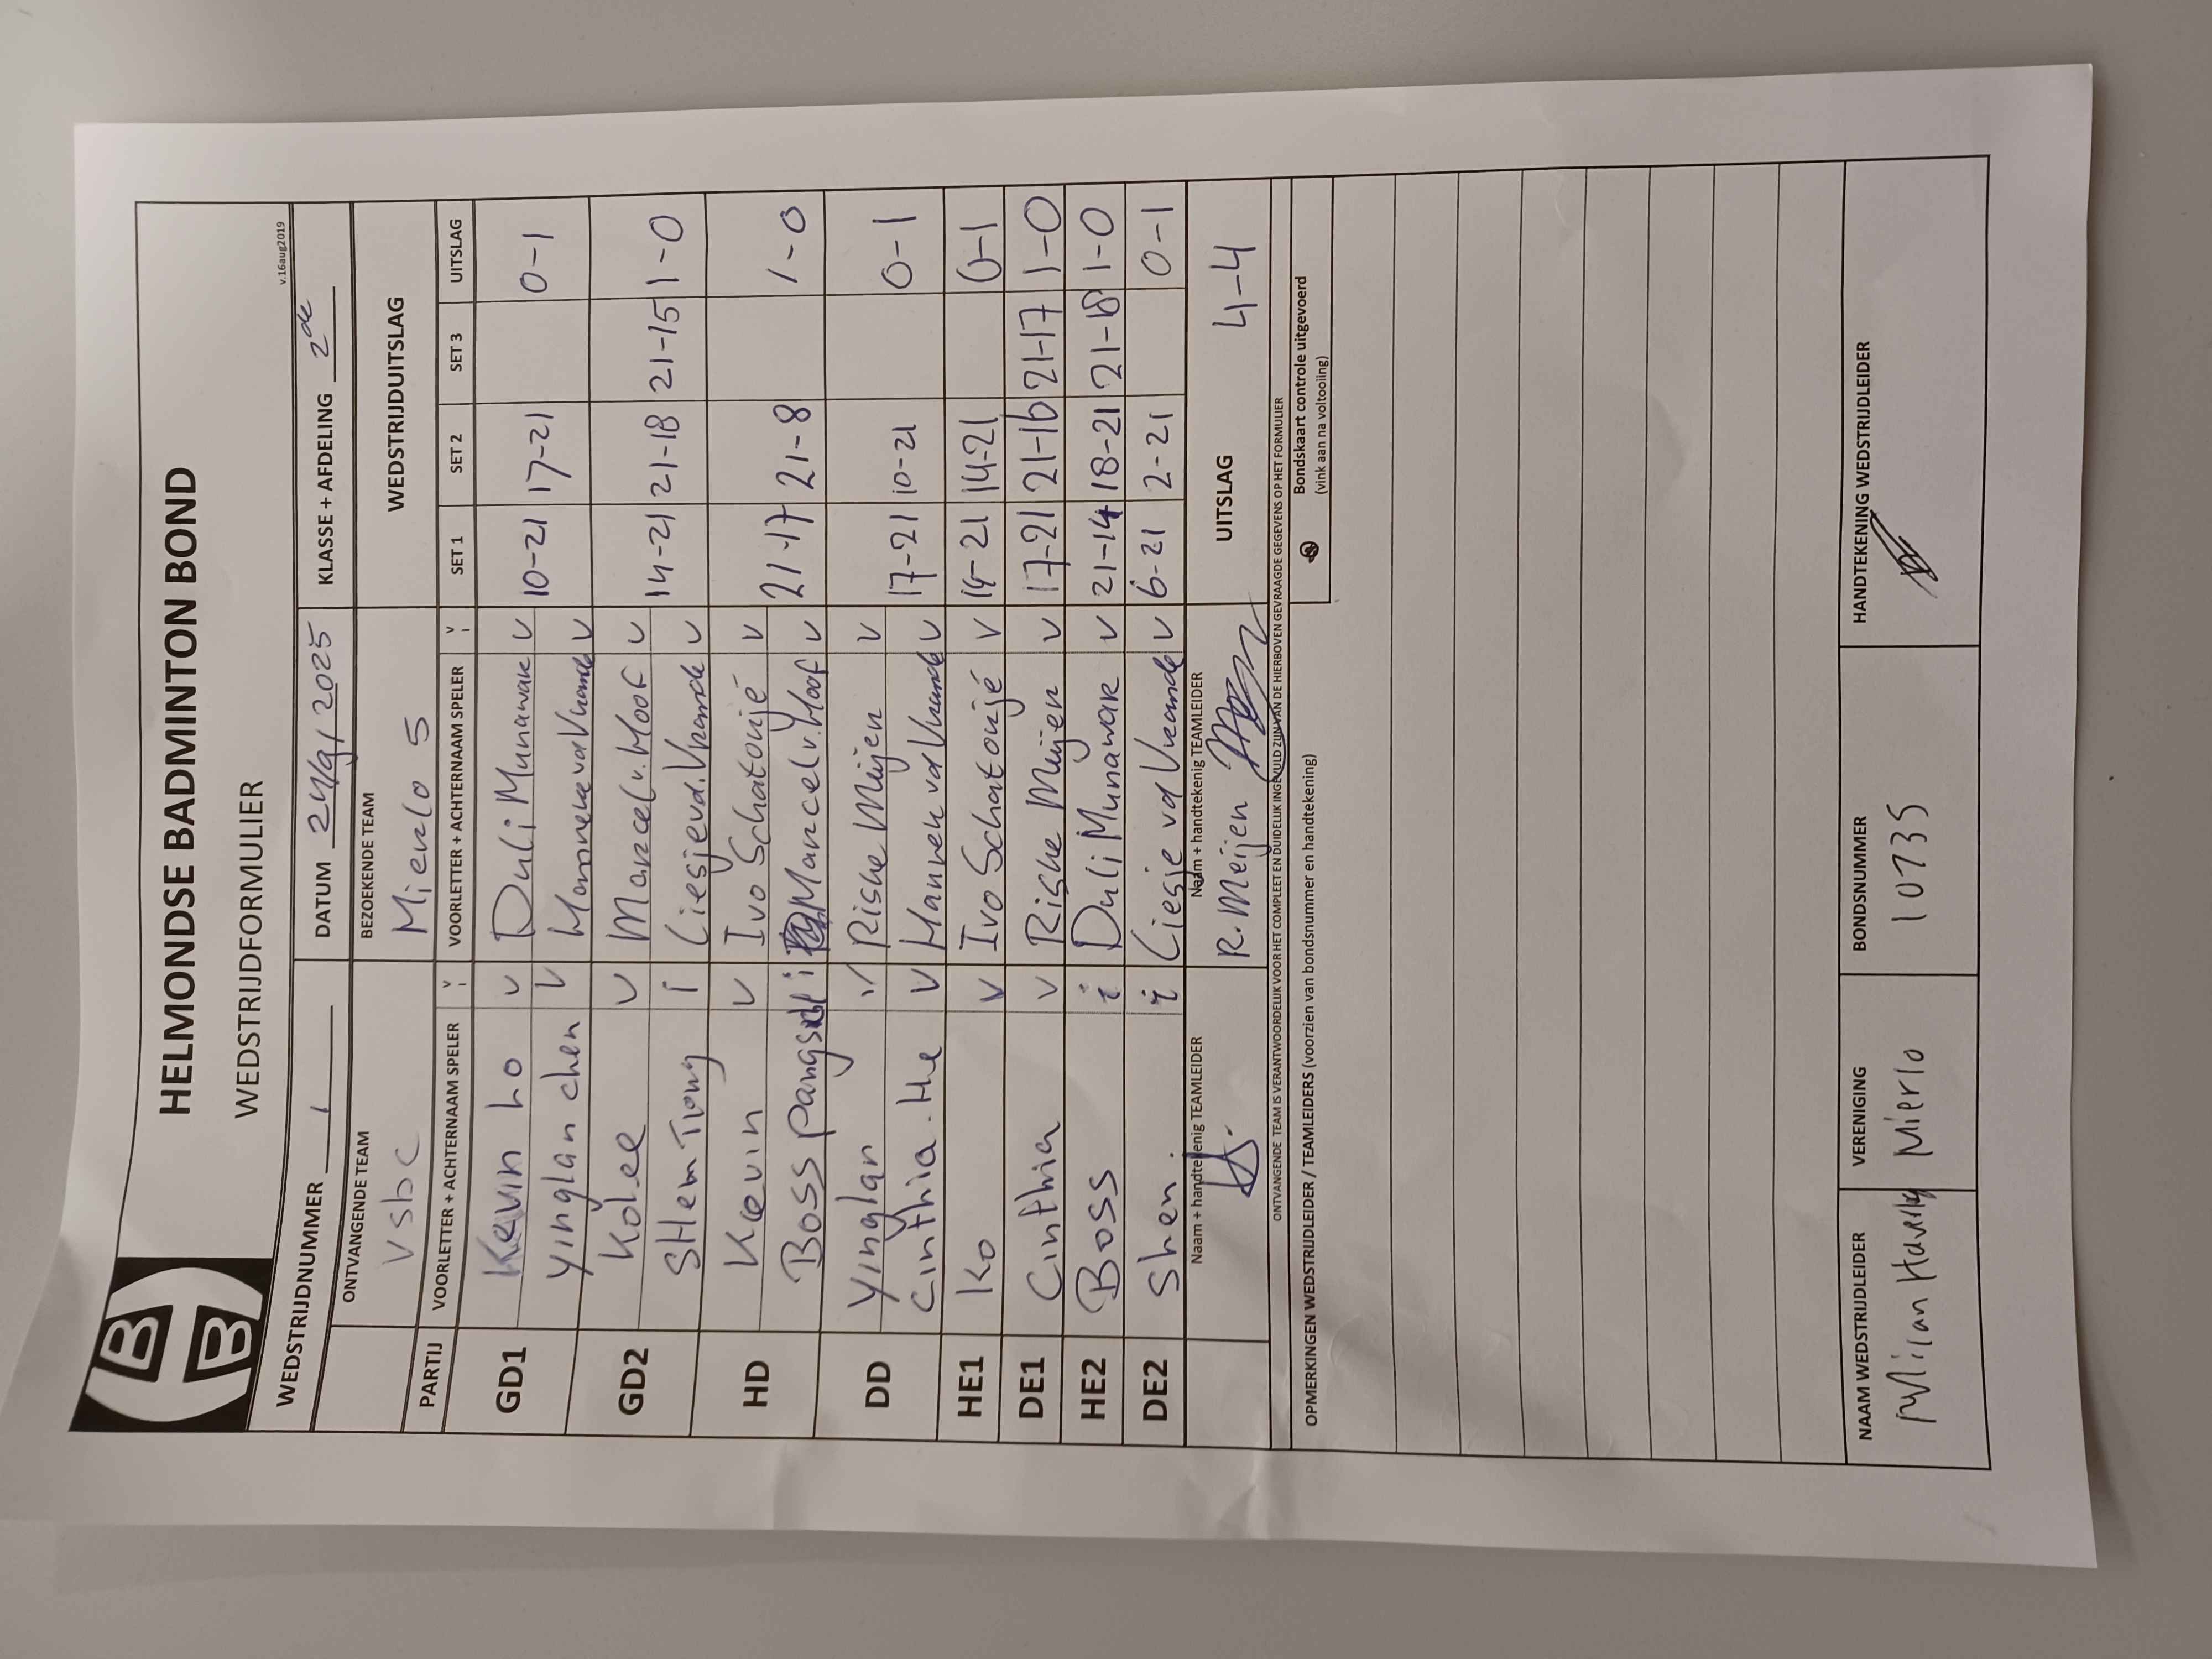 HELMONDSE BADMINTON BOND
WEDSTRIJDFORMULIER
v.16aug2019
WEDSTRIJDNUMMER 1 DATUM 24/9/2025 KLASSE + AFDELING 2de
ONTVANGENDE TEAM BEZOEKENDE TEAM WEDSTRIJDUITSLAG
Vsbc Mierlo 5
PARTIJ VOORLETTER + ACHTERNAAM SPELER V I VOORLETTER + ACHTERNAAM SPELER V I SET 1 SET 2 SET 3 UITSLAG
GD1 Kevin ho v Duli Munawar v 10-21 17-21 0-1
Yinglan chen v Hanneke vd Vrande v
GD2 Ko Lee v Marcel v. Hoof v 14-21 21-18 21-15 1-0
SHem Tiong i Liesje vd. Vrande v
HD Kevin v Ivo Schatonjé v 21-17 21-8 1-0
Boss i Marcel v. Hoof v
DD Yinglan v Riske Muijen v 17-21 10-21 0-1
Cinthia. He v Hanneke vd Vrande v
HE1 Ko v Ivo Schatonjé v 14-21 14-21 0-1
DE1 Cinthia v Riske Muijen v 17-21 21-16 21-17 1-0
HE2 Boss i Duli Munawar v 21-14 18-21 21-18 1-0
DE2 Shen. i Liesje vd Vrande v 6-21 2-21 0-1
Naam + handtekenig TEAMLEIDER Naam + handtekenig TEAMLEIDER UITSLAG 4-4
R. Meijen
ONTVANGENDE TEAM IS VERANTWOORDELIJK VOOR HET COMPLEET EN DUIDELIJK INGEVULD ZIJN VAN DE HIERBOVEN GEVRAAGDE GEGEVENS OP HET FORMULIER
OPMERKINGEN WEDSTRIJDLEIDER / TEAMLEIDERS (voorzien van bondsnummer en handtekening) Bondskaart controle uitgevoerd
(vink aan na voltooiing)
NAAM WEDSTRIJDLEIDER VERENIGING BONDSNUMMER HANDTEKENING WEDSTRIJDLEIDER
Milan Mierlo 10735